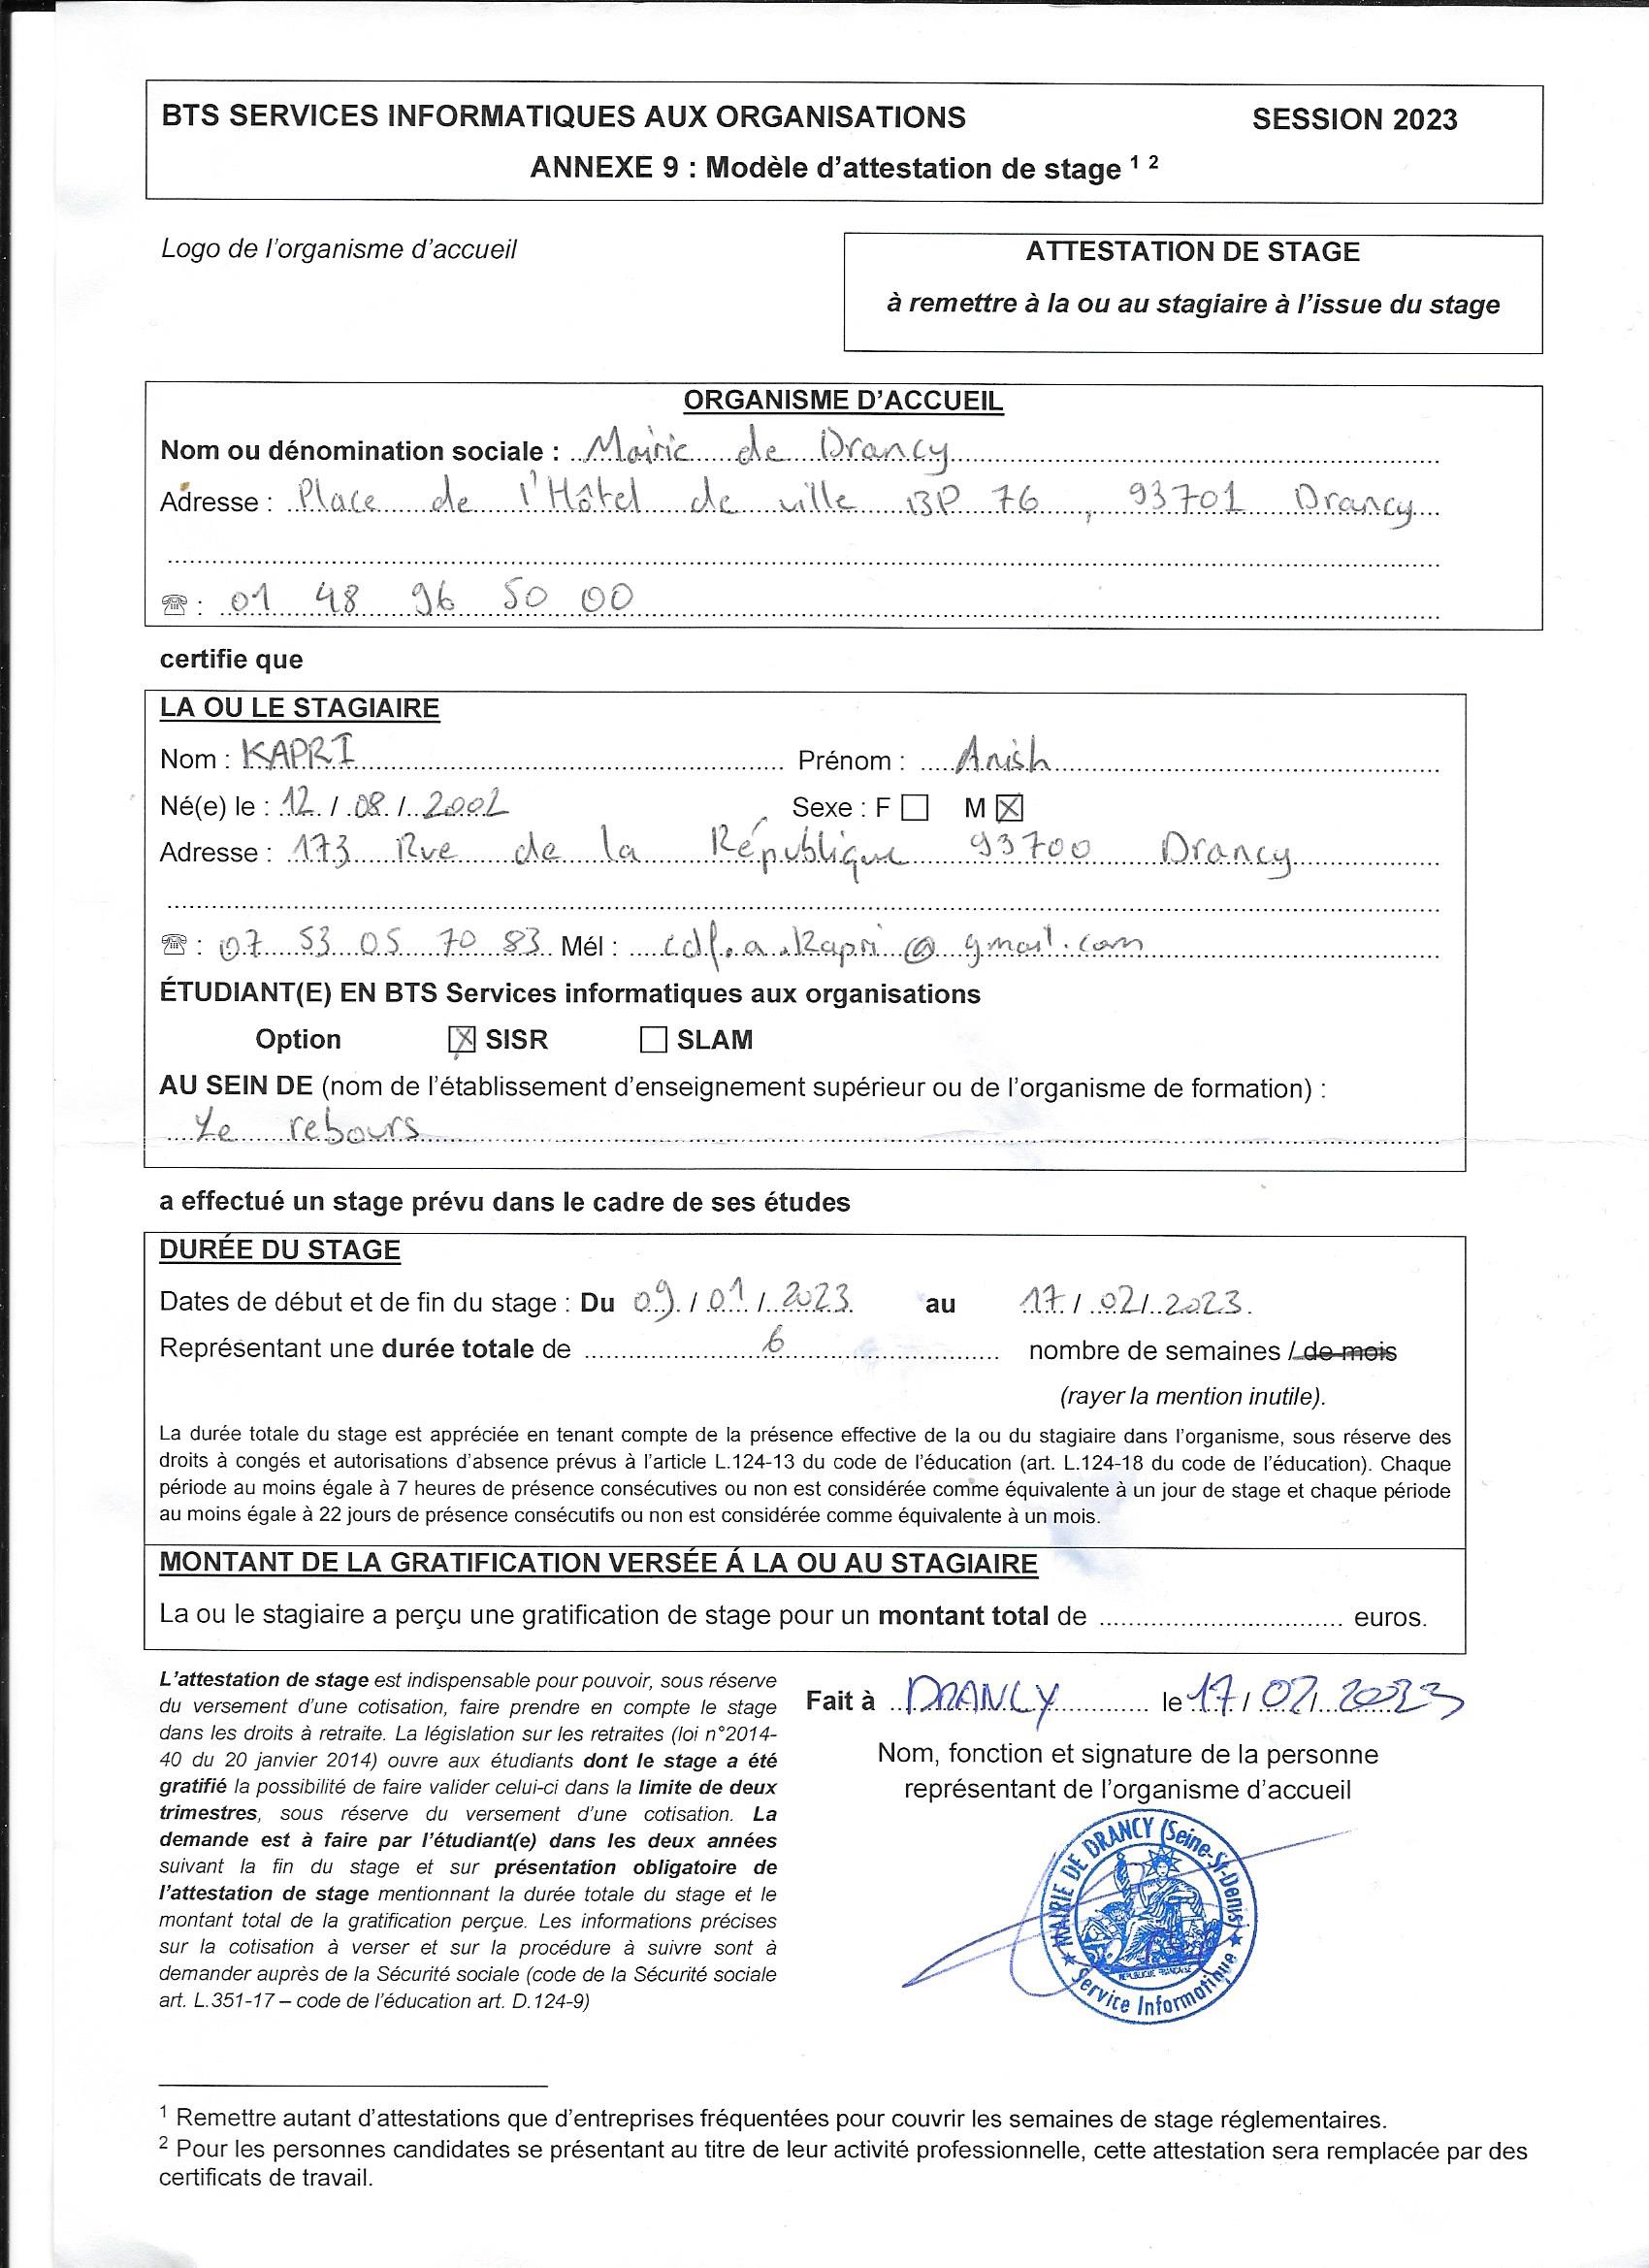 BTS SERVICES INFORMATIQUES AUX ORGANISATIONS SESSION 2023
ANNEXE 9 : Modèle d'attestation de stage 1 2
Logo de l'organisme d'accueil
ATTESTATION DE STAGE
à remettre à la ou au stagiaire à l'issue du stage
ORGANISME D'ACCUEIL
Nom ou dénomination sociale : Mairie de Drancy
Adresse : Place de l'Hôtel de ville BP 76, 93701 Drancy
☏ : 01 48 96 50 00
certifie que
LA OU LE STAGIAIRE
Nom : KAPRI Prénom : Anish
Né(e) le : 12 / 08 / 2002 Sexe : F ☐ M ☒
Adresse : 173 Rue de la République 93700 Drancy
☏ : 07 53 05 70 83 Mél : cdf.a.kapri@gmail.com
ÉTUDIANT(E) EN BTS Services informatiques aux organisations
Option ☒ SISR ☐ SLAM
AU SEIN DE (nom de l'établissement d'enseignement supérieur ou de l'organisme de formation) :
Le rebours
a effectué un stage prévu dans le cadre de ses études
DURÉE DU STAGE
Dates de début et de fin du stage : Du 09 / 01 / 2023 au 17 / 02 / 2023.
Représentant une durée totale de 6 nombre de semaines / de mois
(rayer la mention inutile).
La durée totale du stage est appréciée en tenant compte de la présence effective de la ou du stagiaire dans l'organisme, sous réserve des
droits à congés et autorisations d'absence prévus à l'article L.124-13 du code de l'éducation (art. L.124-18 du code de l'éducation). Chaque
période au moins égale à 7 heures de présence consécutives ou non est considérée comme équivalente à un jour de stage et chaque période
au moins égale à 22 jours de présence consécutifs ou non est considérée comme équivalente à un mois.
MONTANT DE LA GRATIFICATION VERSÉE Á LA OU AU STAGIAIRE
La ou le stagiaire a perçu une gratification de stage pour un montant total de ................ euros.
L'attestation de stage est indispensable pour pouvoir, sous réserve
du versement d'une cotisation, faire prendre en compte le stage
dans les droits à retraite. La législation sur les retraites (loi n°2014-
40 du 20 janvier 2014) ouvre aux étudiants dont le stage a été
gratifié la possibilité de faire valider celui-ci dans la limite de deux
trimestres, sous réserve du versement d'une cotisation. La
demande est à faire par l'étudiant(e) dans les deux années
suivant la fin du stage et sur présentation obligatoire de
l'attestation de stage mentionnant la durée totale du stage et le
montant total de la gratification perçue. Les informations précises
sur la cotisation à verser et sur la procédure à suivre sont à
demander auprès de la Sécurité sociale (code de la Sécurité sociale
art. L.351-17 – code de l'éducation art. D.124-9)
Fait à DRANCY le 17 / 02 / 2023
Nom, fonction et signature de la personne
représentant de l'organisme d'accueil
MAIRIE DE DRANCY (Seine-St-Denis)
REPUBLIQUE FRANCAISE
Service Informatique
1 Remettre autant d'attestations que d'entreprises fréquentées pour couvrir les semaines de stage réglementaires.
2 Pour les personnes candidates se présentant au titre de leur activité professionnelle, cette attestation sera remplacée par des
certificats de travail.